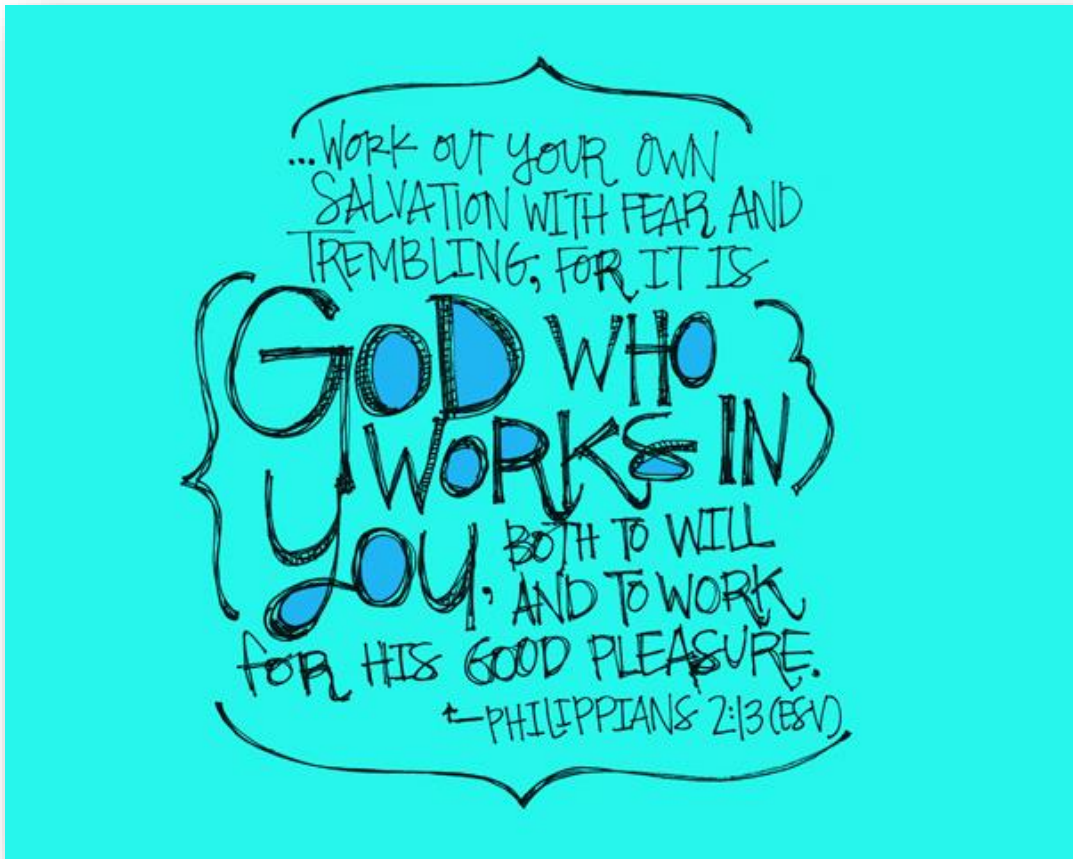 ...WORK OUT YOUR OWN
SALVATION WITH FEAR AND
TREMBLING, FOR IT IS
GOD WHO
WORKS IN
YOU, BOTH TO WILL
AND TO WORK
FOR HIS GOOD PLEASURE.
-PHILIPPIANS 2:13 (ESV)